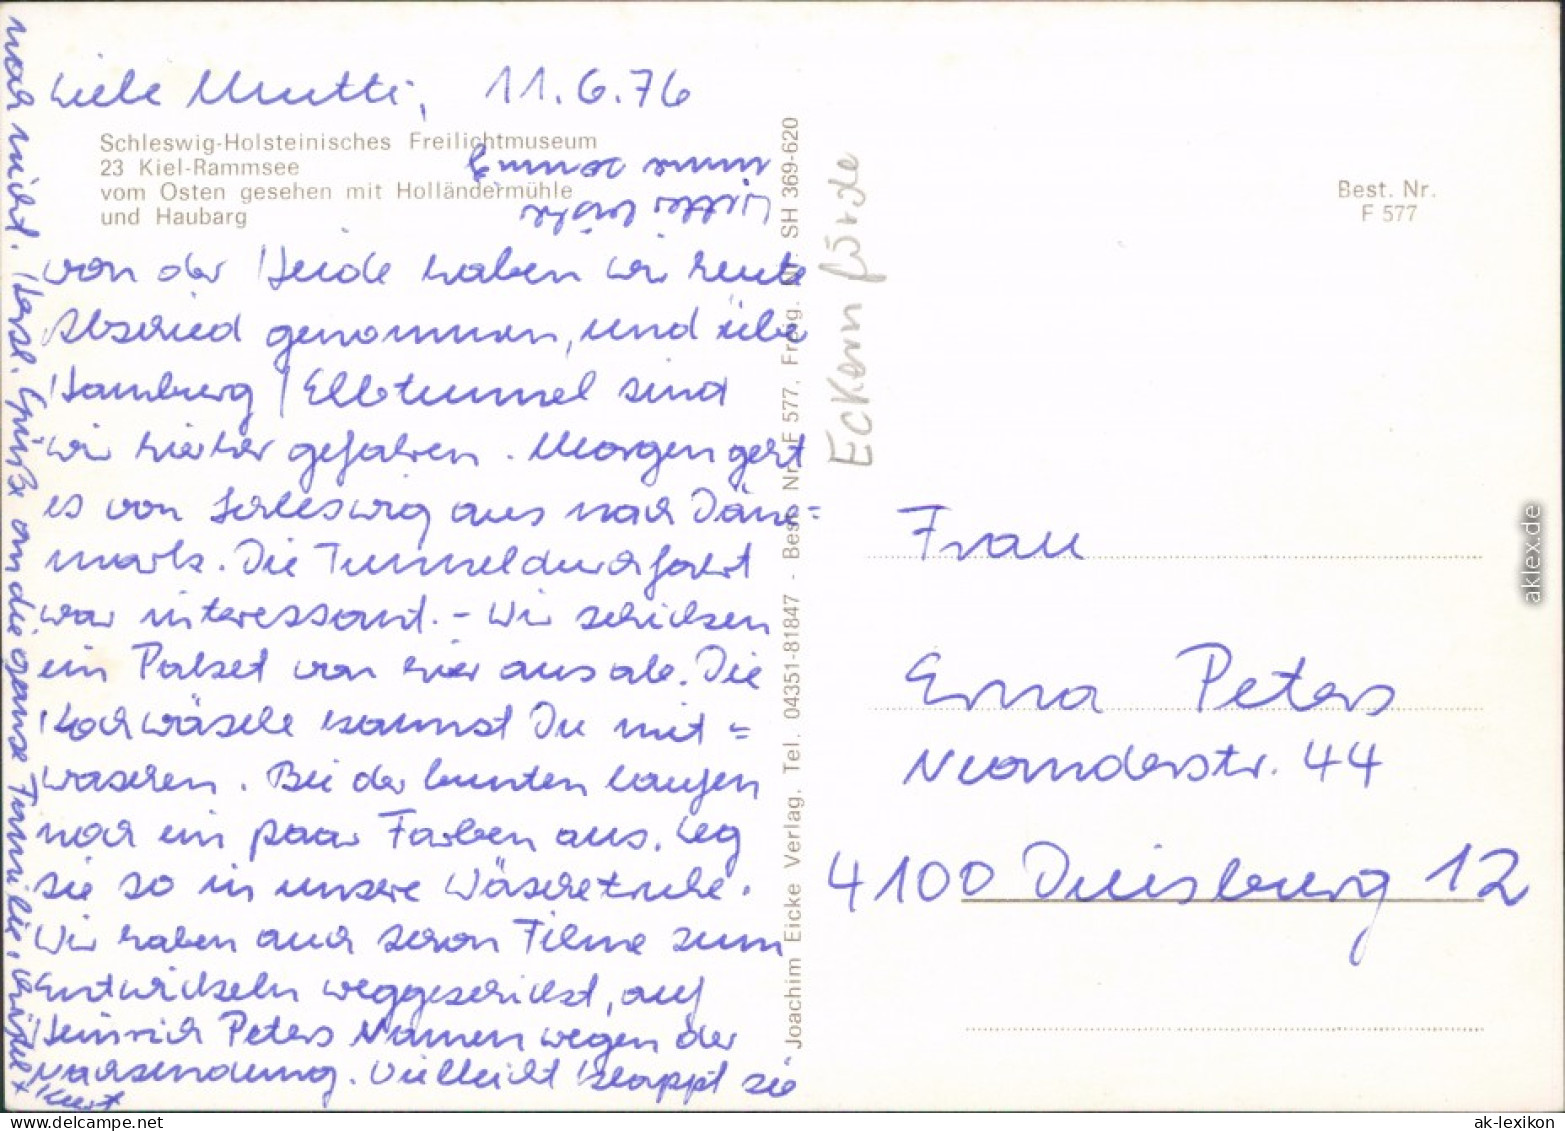 Liebe Mutti, 11.6.76
Schleswig-Holsteinisches Freilichtmuseum
23 Kiel-Rammsee
vom Osten gesehen mit Holländermühle
und Haubarg
von der Heide haben wir heute
Abschied genommen, und über
Hamburg / Elbtunnel sind
wir hierher gefahren. Morgen geht
es von Schleswig aus nach Däne=
mark. Die Tunneldurchfahrt
war interessant. - Wir schicken
ein Paket von hier aus ab. Die
Kochwäsche kannst Du mit=
waschen. Bei der bunten laufen
noch ein paar Farben aus. Leg
sie so in unsere Wäschetruhe.
Wir haben auch schon Filme zum
Entwickeln weggeschickt, auf
Heinrich Peters Namen wegen der
Nachsendung. Vielleicht klappt sie
noch nicht. Herzl. Grüße an die ganze Familie,
Kurt
Joachim Eicke Verlag. Tel. 04351-81847 - Best. Nr. F 577. Freig. Nr. SH 369-620
Eckernförde
Best. Nr.
F 577
Frau
Erna Peters
Neanderstr. 44
4100 Duisburg 12
aklex.de
ak-lexikon